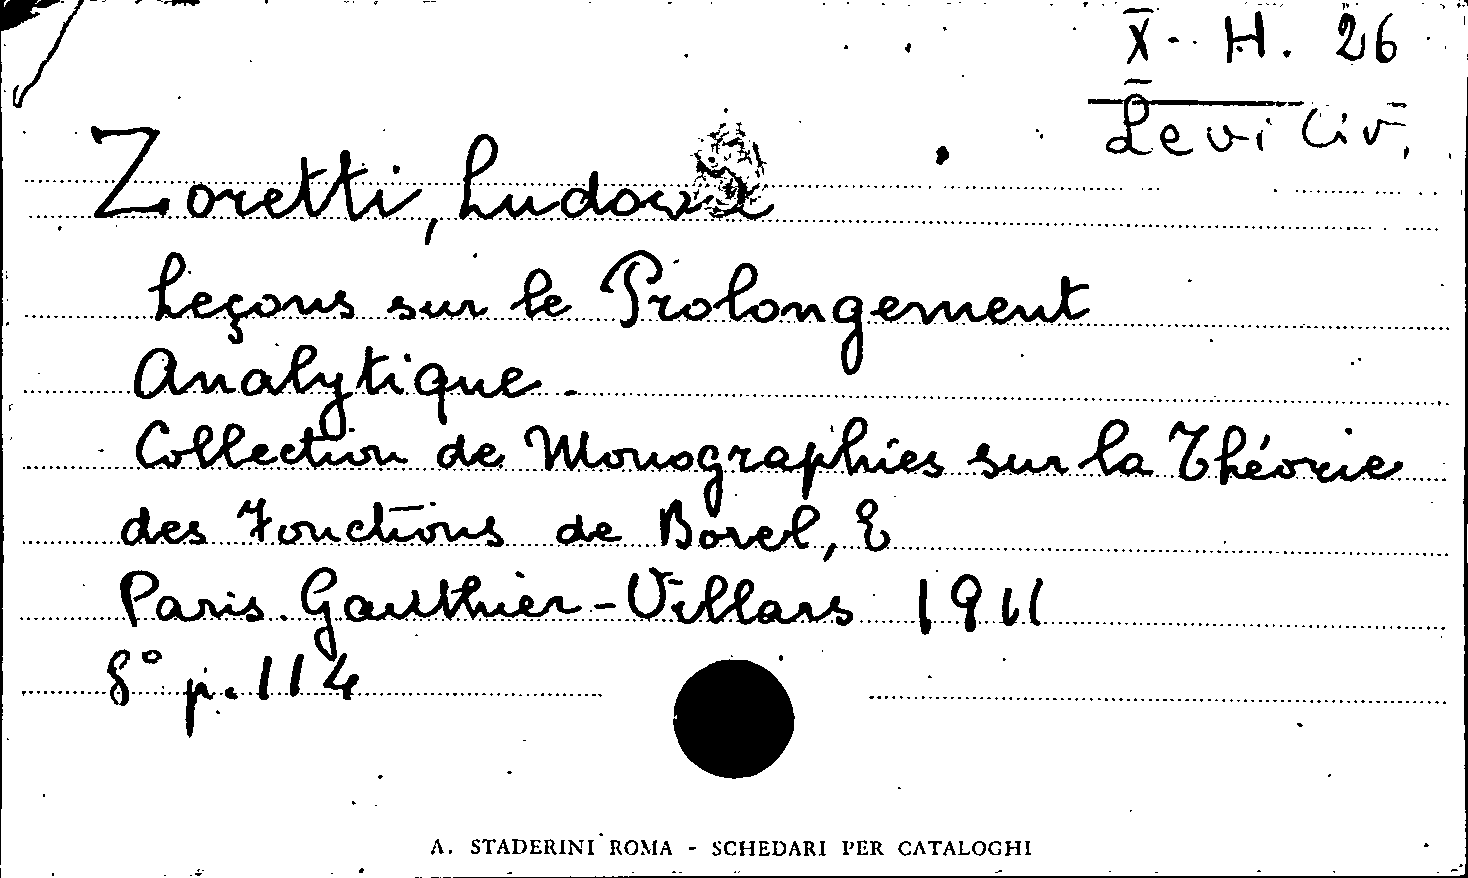 X - H. 26
Levi Civ.
Zoretti,
Leçons sur le Prolongement
Analytique.
Collection de Monographies sur la Théorie
des Fonctions de Borel, E
Paris. Gauthier-Villars 1911
8° p. 114
A. STADERINI ROMA - SCHEDARI PER CATALOGHI